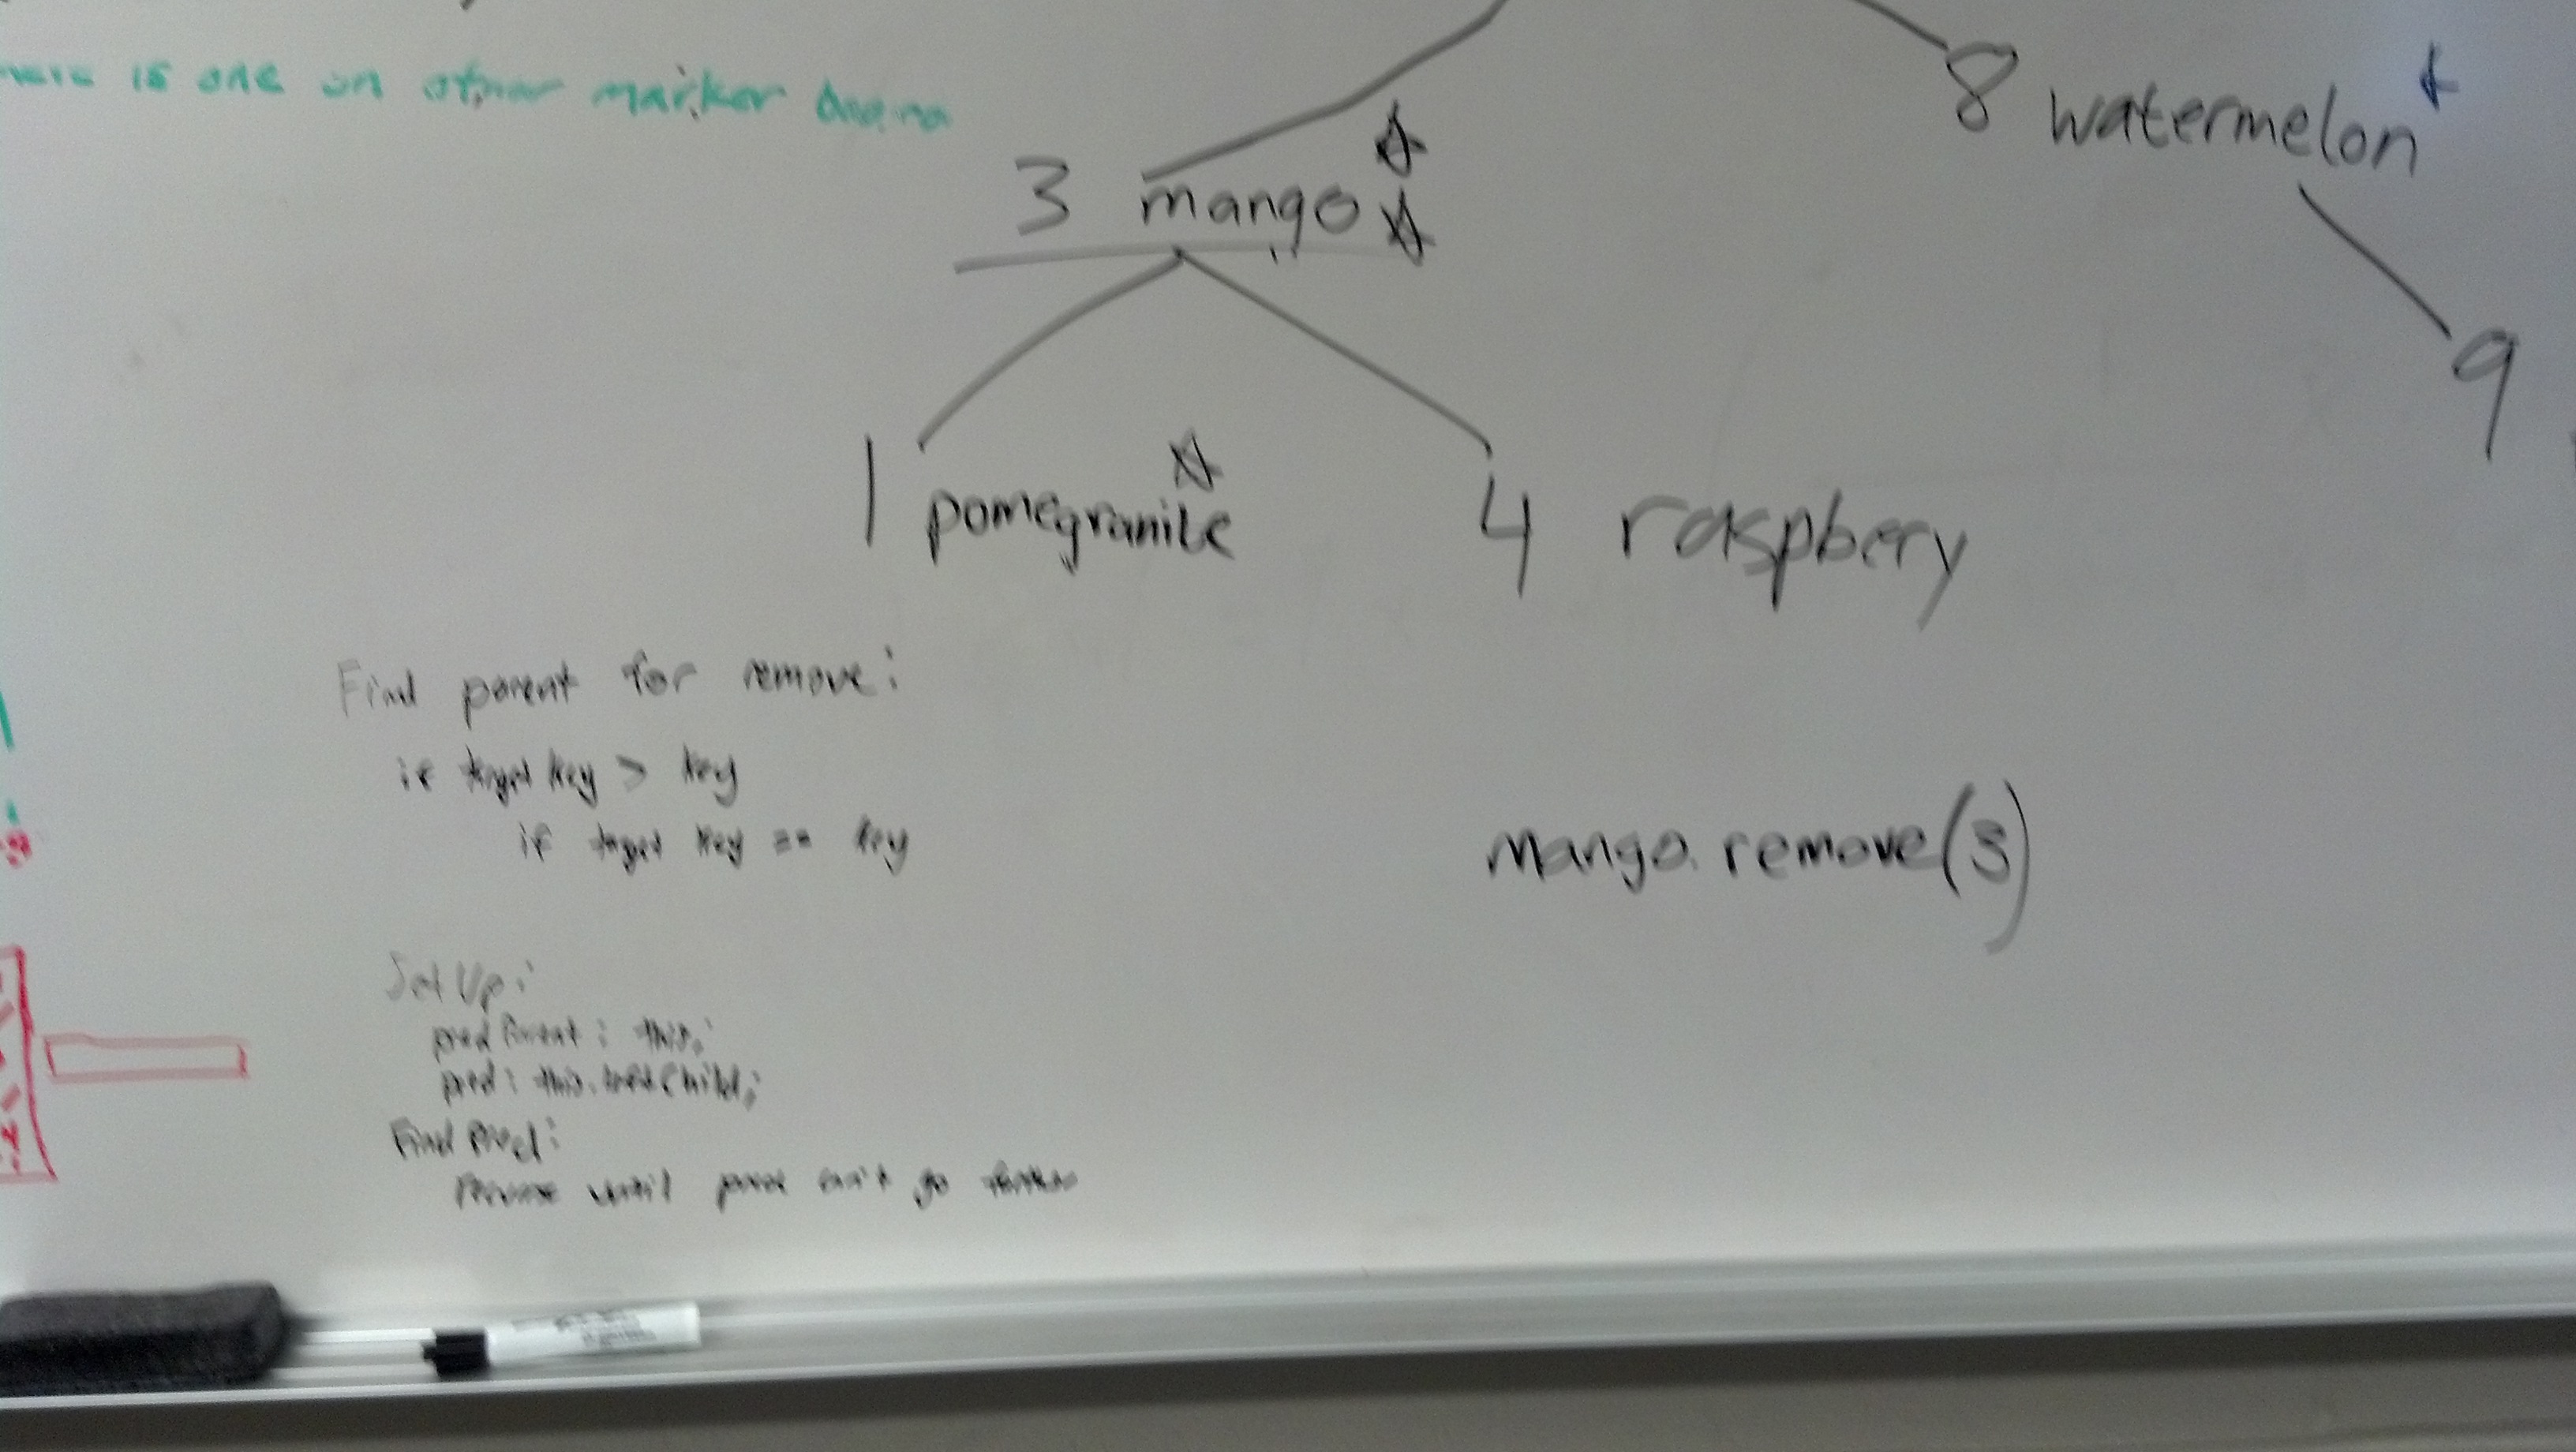 is one on other marker board
8 watermelon
3 mango
9
1 pomegranite
4 raspbery
Find parent for remove:
if target key > key
if target key == key
mango.remove(3)
Set Up:
pred Parent : this;
pred : this.leftChild;
Find Pred:
until pred can't go further